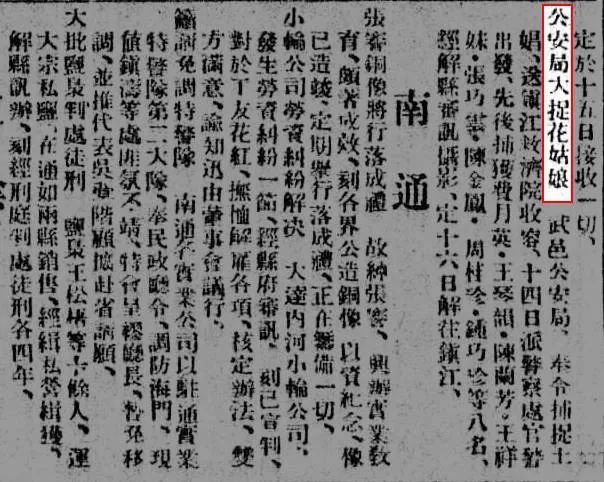 定於十五日接收一切、
公安局大捉花姑娘 武邑公安局、奉令捕捉土
娼、送鎮江救濟院收容、十四日派警察處官警
出發、先後捕獲費月英·王琴韻陳蘭芳·王祥
妹·張巧雲·陳金鳳·周桂珍·鍾巧珍等八名、
經解縣審訊攝影、定十六日解往鎮江、
南通
張謇銅像將行落成禮 故紳張謇、興辦實業教
育、頗著成效、刻各界公造銅像、以資紀念、像
已造竣、定期舉行落成禮、正在籌備一切、
小輪公司勞資糾紛解決 大達內河小輪公司、
發生勞資糾紛一節、經縣府審訊、刻已宣判、
對於工友花紅、撫恤解雇各項、核定辦法、雙
方滿意、諭知迅由董事會議行、
籲請免調特警隊 南通各實業公司以駐通實業
特警隊第二大隊、奉民政廳令、調防海門、現
值鎮濤等處匪氛不靖、特會呈繆廳長、暫免移
調、並推代表吳 階顧 赴省請願、
大批鹽梟判處徒刑 鹽梟王松 等十餘人、運
大宗私鹽、在通如兩縣銷售、經緝私營緝獲、
解縣訊辦、刻經刑庭判處徒刑各四年、